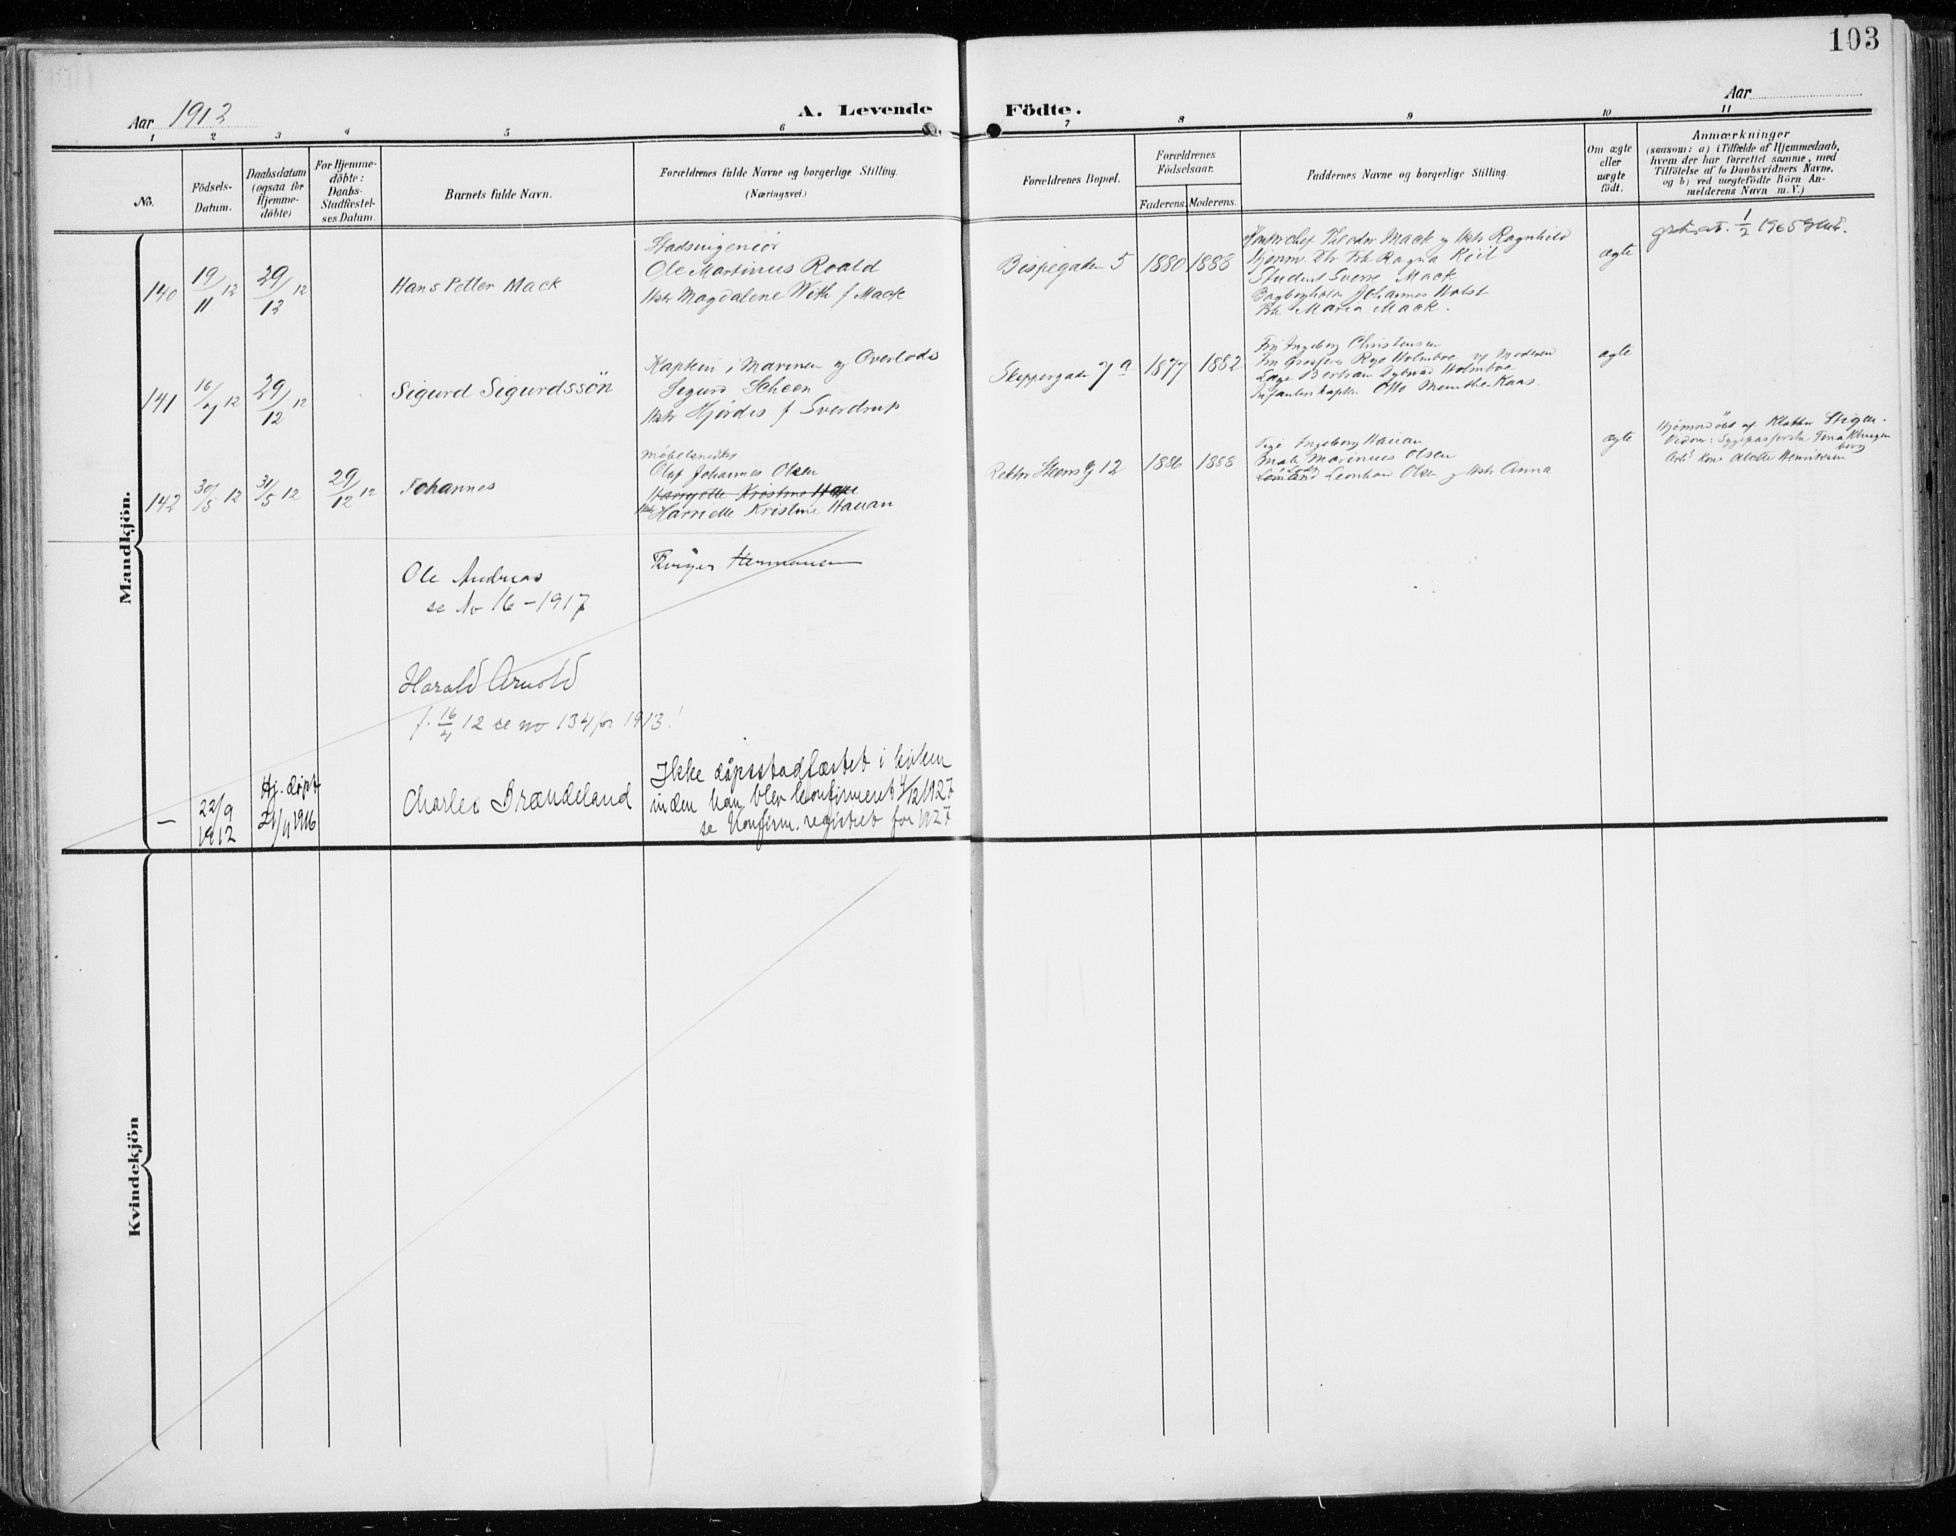 103
Aar 1912
A. Levende Födte.
Aar
1 2 3 4 5 6 7 8 9 10 11
No.
Födsels-
Datum.
Daabsdatum
(ogsaa for
Hjemme-
döbte)
For Hjemme-
döbte:
Daabs-
Stadfæstel-
ses Datum.
Barnets fulde Navn.
Forældrenes fulde Navne og borgerlige Stilling.
(Næringsvei.)
Forældrenes Bopæl.
Forældrenes
Födselsaar.
Faderens.
Moderens.
Faddernes Navne og borgerlige Stilling.
Om ægte
eller
uægte
födt.
Anmærkninger
(saasom: a) i Tilfælde af Hjemmedaab,
hvem der har forrettet samme, med
Tilföielse af to Daabsvidners Navne.
og b) ved uægtefödte Börn An-
melderens Navn m. V.)
Mandkjön.
140
19/11 12
29/12 12
Hans Petter Mack
Stadsingeniör
Ole Martinus Roald
Hstr Magdalene With f Mack
Bispegaden 5
1880
1888
Theodor Mack og Hstr Ragnhild
Frk Ragna Kiil
Student Sverre Mack
Johannes Holst
Frk Maria Mack.
ægte
1/2 1965
141
16/7 12
29/12 12
Sigurd Sigurdssön
Kaptein i Marinen og Overlods
Sigurd Scheen
Hstr Hjördis f Sverdrup
Skippergaden 7a
1877
1882
Fru Ingeborg Christensen
Fru Rye Holmboe og Moderen
Læge Bertram Dybwad Holmboe
Infanterikaptein Otto Munthe-Kaas.
ægte
142
30/5 12
31/5 12
29/12 12
Johannes
Möbelsnedker
Olaf Johannes Olsen
Hstr Harriette Kristine Hauan
Rektor Steens g 12
1886
1888
Pige Ingeborg Hauan
Marinius Olsen
Leonhard Olsen og Hstr Anna
ægte
Hjemmedöbt af
Vidner:
Henriksen
Ole Andreas
se No 16 - 1917
Hermansen
Harald Arnold
f. 16/4 12 se no 134 for 1913!
–
22/9
1912
Hj. døpt
21/11 1916
Charles Brændeland
Ikke dåpsstadfæstet i kirken
inden han blev konfirmeret 4/12 1927
se Konfirm. registret for 1927
Kvindekjön